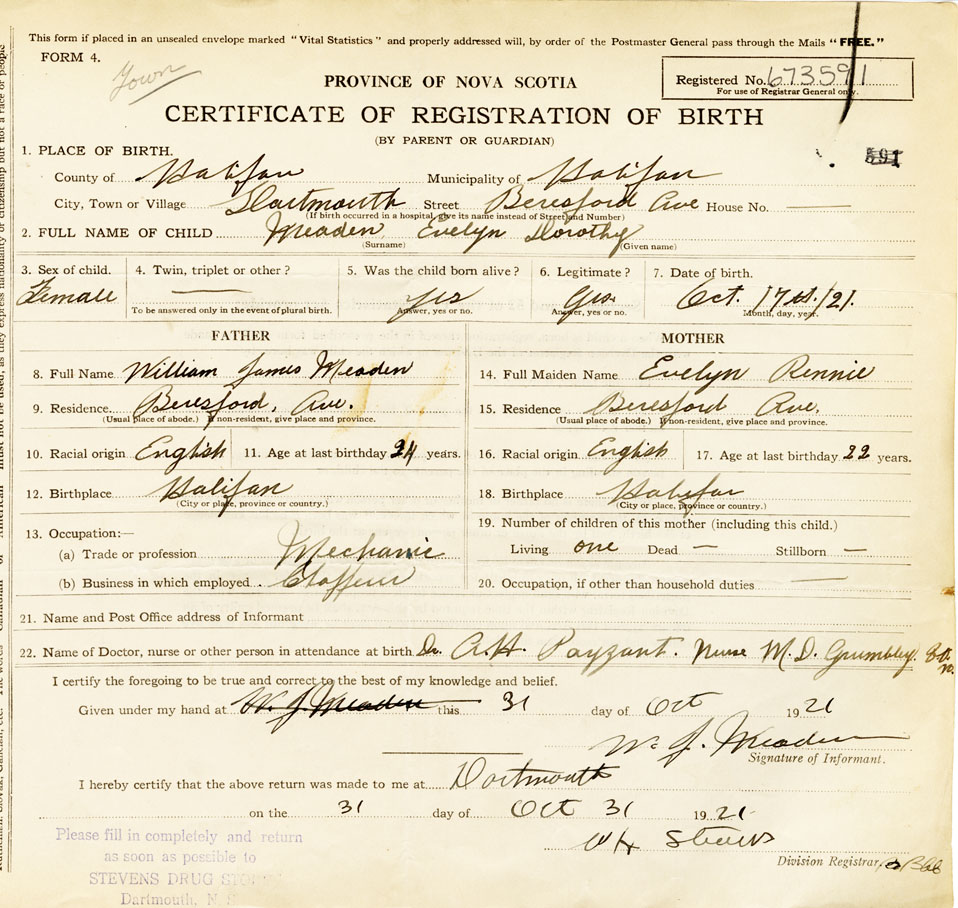 This form if placed in an unsealed envelope marked "Vital Statistics" and properly addressed will, by order of the Postmaster General pass through the Mails "FREE."
FORM 4.
Town
PROVINCE OF NOVA SCOTIA
Registered No. 673591
For use of Registrar General only.
CERTIFICATE OF REGISTRATION OF BIRTH
(BY PARENT OR GUARDIAN)
591
1. PLACE OF BIRTH.
County of Halifax Municipality of Halifax
City, Town or Village Dartmouth Street Beresford Ave House No. —
(If birth occurred in a hospital, give its name instead of Street and Number)
2. FULL NAME OF CHILD Meaden Evelyn Dorothy
(Surname) (Given name)
3. Sex of child. 4. Twin, triplet or other? 5. Was the child born alive? 6. Legitimate? 7. Date of birth.
Female — Yes Yes Oct. 17 /21.
To be answered only in the event of plural birth. Answer, yes or no. Answer, yes or no. Month, day, year.
FATHER MOTHER
8. Full Name William James Meaden 14. Full Maiden Name Evelyn Rennie
9. Residence Beresford, Ave. 15. Residence Beresford Ave.
(Usual place of abode.) If non-resident, give place and province. (Usual place of abode.) If non-resident, give place and province.
10. Racial origin English 11. Age at last birthday 24 years. 16. Racial origin English 17. Age at last birthday 22 years.
12. Birthplace Halifax 18. Birthplace Halifax
(City or place, province or country.) (City or place, province or country.)
13. Occupation:— 19. Number of children of this mother (including this child.)
(a) Trade or profession Mechanic Living one Dead — Stillborn —
(b) Business in which employed Choffeur 20. Occupation, if other than household duties —
21. Name and Post Office address of Informant
22. Name of Doctor, nurse or other person in attendance at birth Dr. A. H. Payzant. Nurse M. D. Grumbley.
I certify the foregoing to be true and correct to the best of my knowledge and belief.
Given under my hand at W. J. Meaden this 31 day of Oct 1921
W. J. Meaden
Signature of Informant.
I hereby certify that the above return was made to me at Dartmouth
on the 31 day of Oct 31 1921
Division Registrar.
Please fill in completely and return
as soon as possible to
STEVENS DRUG STORE
Dartmouth, N. S.